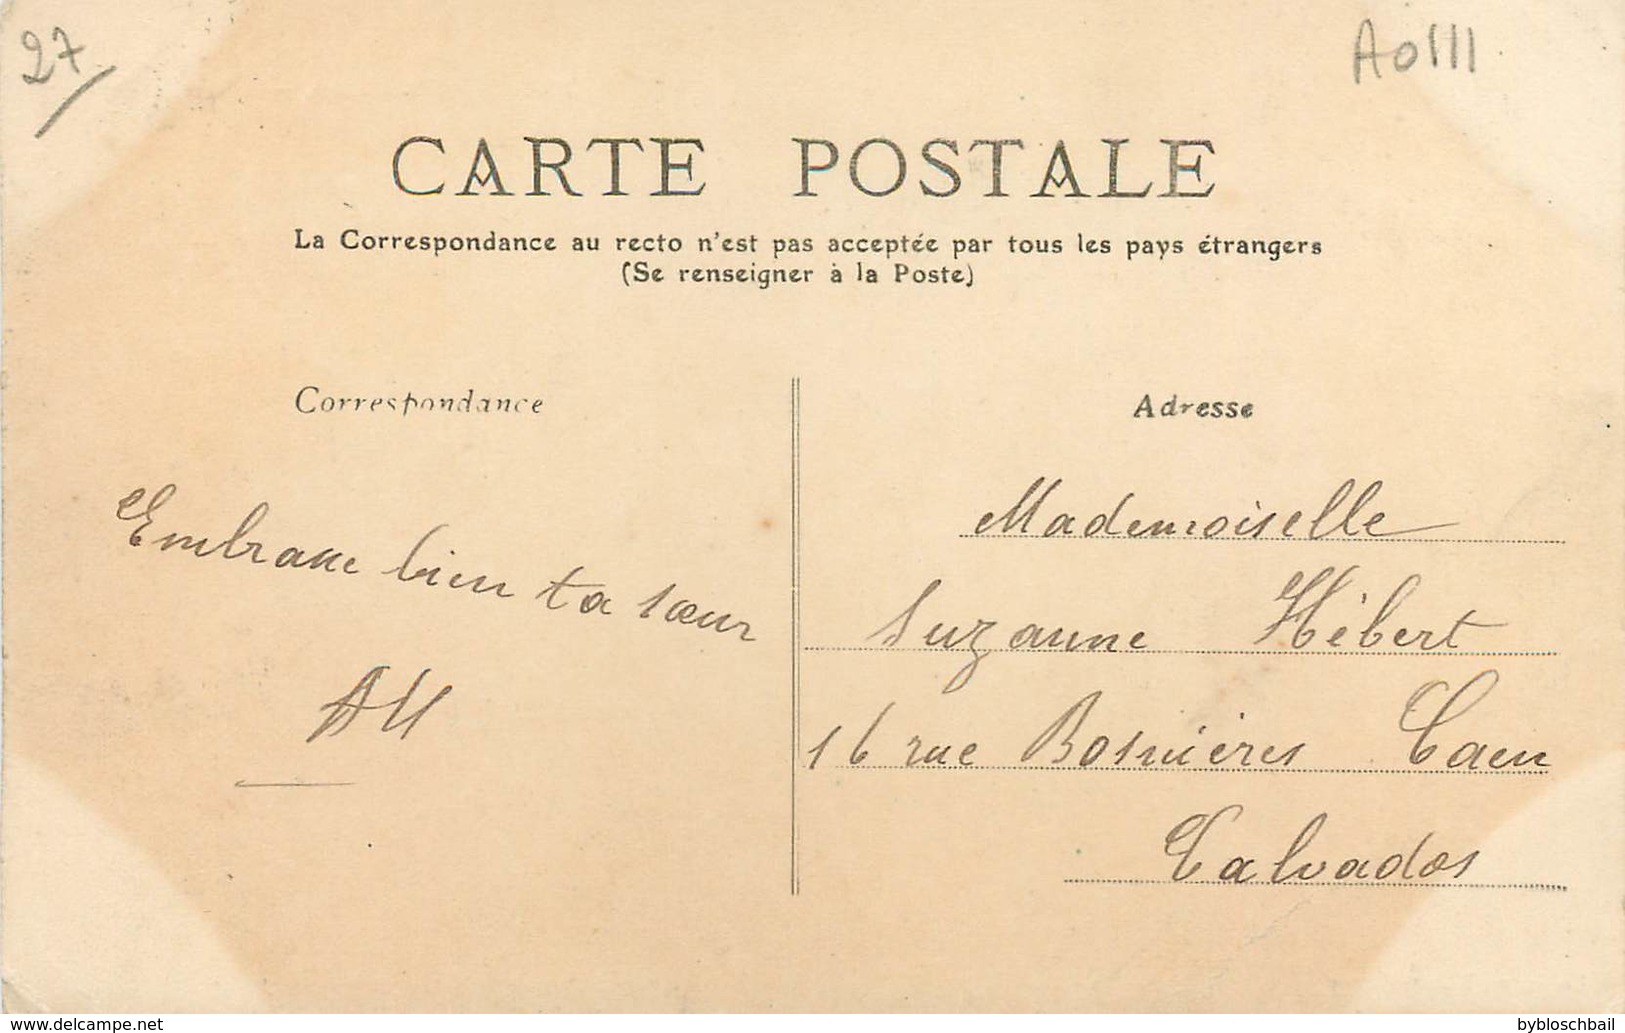 27
A0111
CARTE POSTALE
La Correspondance au recto n'est pas acceptée par tous les pays étrangers
(Se renseigner à la Poste)
Correspondance
Embrasse bien ta sœur
AH
Adresse
Mademoiselle
Suzanne Hébert
16 rue Bosnières Caen
Calvados
www.delcampe.net
bybloschbail